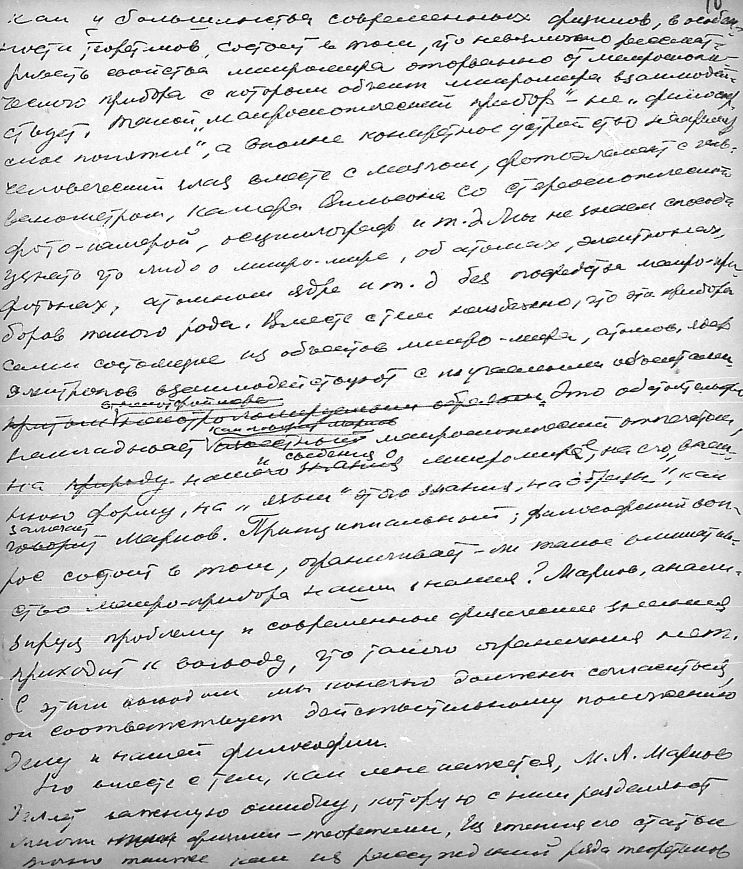 10
как и большинства современных физиков, в особен-
ности теоретиков, состоит в том, что невозможно рассмат-
ривать свойства микромира оторванно от макроскопи-
ческого прибора с которым объект микромира взаимодей-
ствует. Такой „макроскопический прибор" – не „философ
ское понятие", а вполне конкретное устройство например
человеческий глаз вместе с мозгом, фотоэлемент с галь-
ванометром, камера Вильсона со стереоскопической
фото-камерой, осциллограф и т.д. Мы не знаем способа
узнать что либо о микро-мире, об атомах, электронах,
фотонах, атомном ядре и т.д без посредства макро-при
боров такого рода. Вместе с тем неизбежно, что эти приборы
сами состоящие из объектов микро-мира, атомов, ядер
электронов взаимодействуют с изучаемыми объектами
притом неконтролируемым образом. Это обстоятельство
накладывает известный макроскопический отпечаток,
на природу нашего знания и сведения о микромире, на его внеш
нюю форму, на „язык" этого знания, на „образы", как
замечает
говорит Марков. Принципиальный, философский воп-
рос состоит в том, ограничивает-ли такое вмешатель-
ство макро-прибора наши знания? Марков, анали-
зируя проблему и современные физические знания
приходит к выводу, что такого ограничения нет.
С этим выводом мы конечно должны согласиться,
он соответствует действительному положению
дел и нашей философии.
Но вместе с тем, как мне кажется, М.А. Марков
делает важную ошибку, которую с ним разделяют
многие физики-теоретики. Из чтения его статьи
точно также как из рассуждений ряда теоретиков